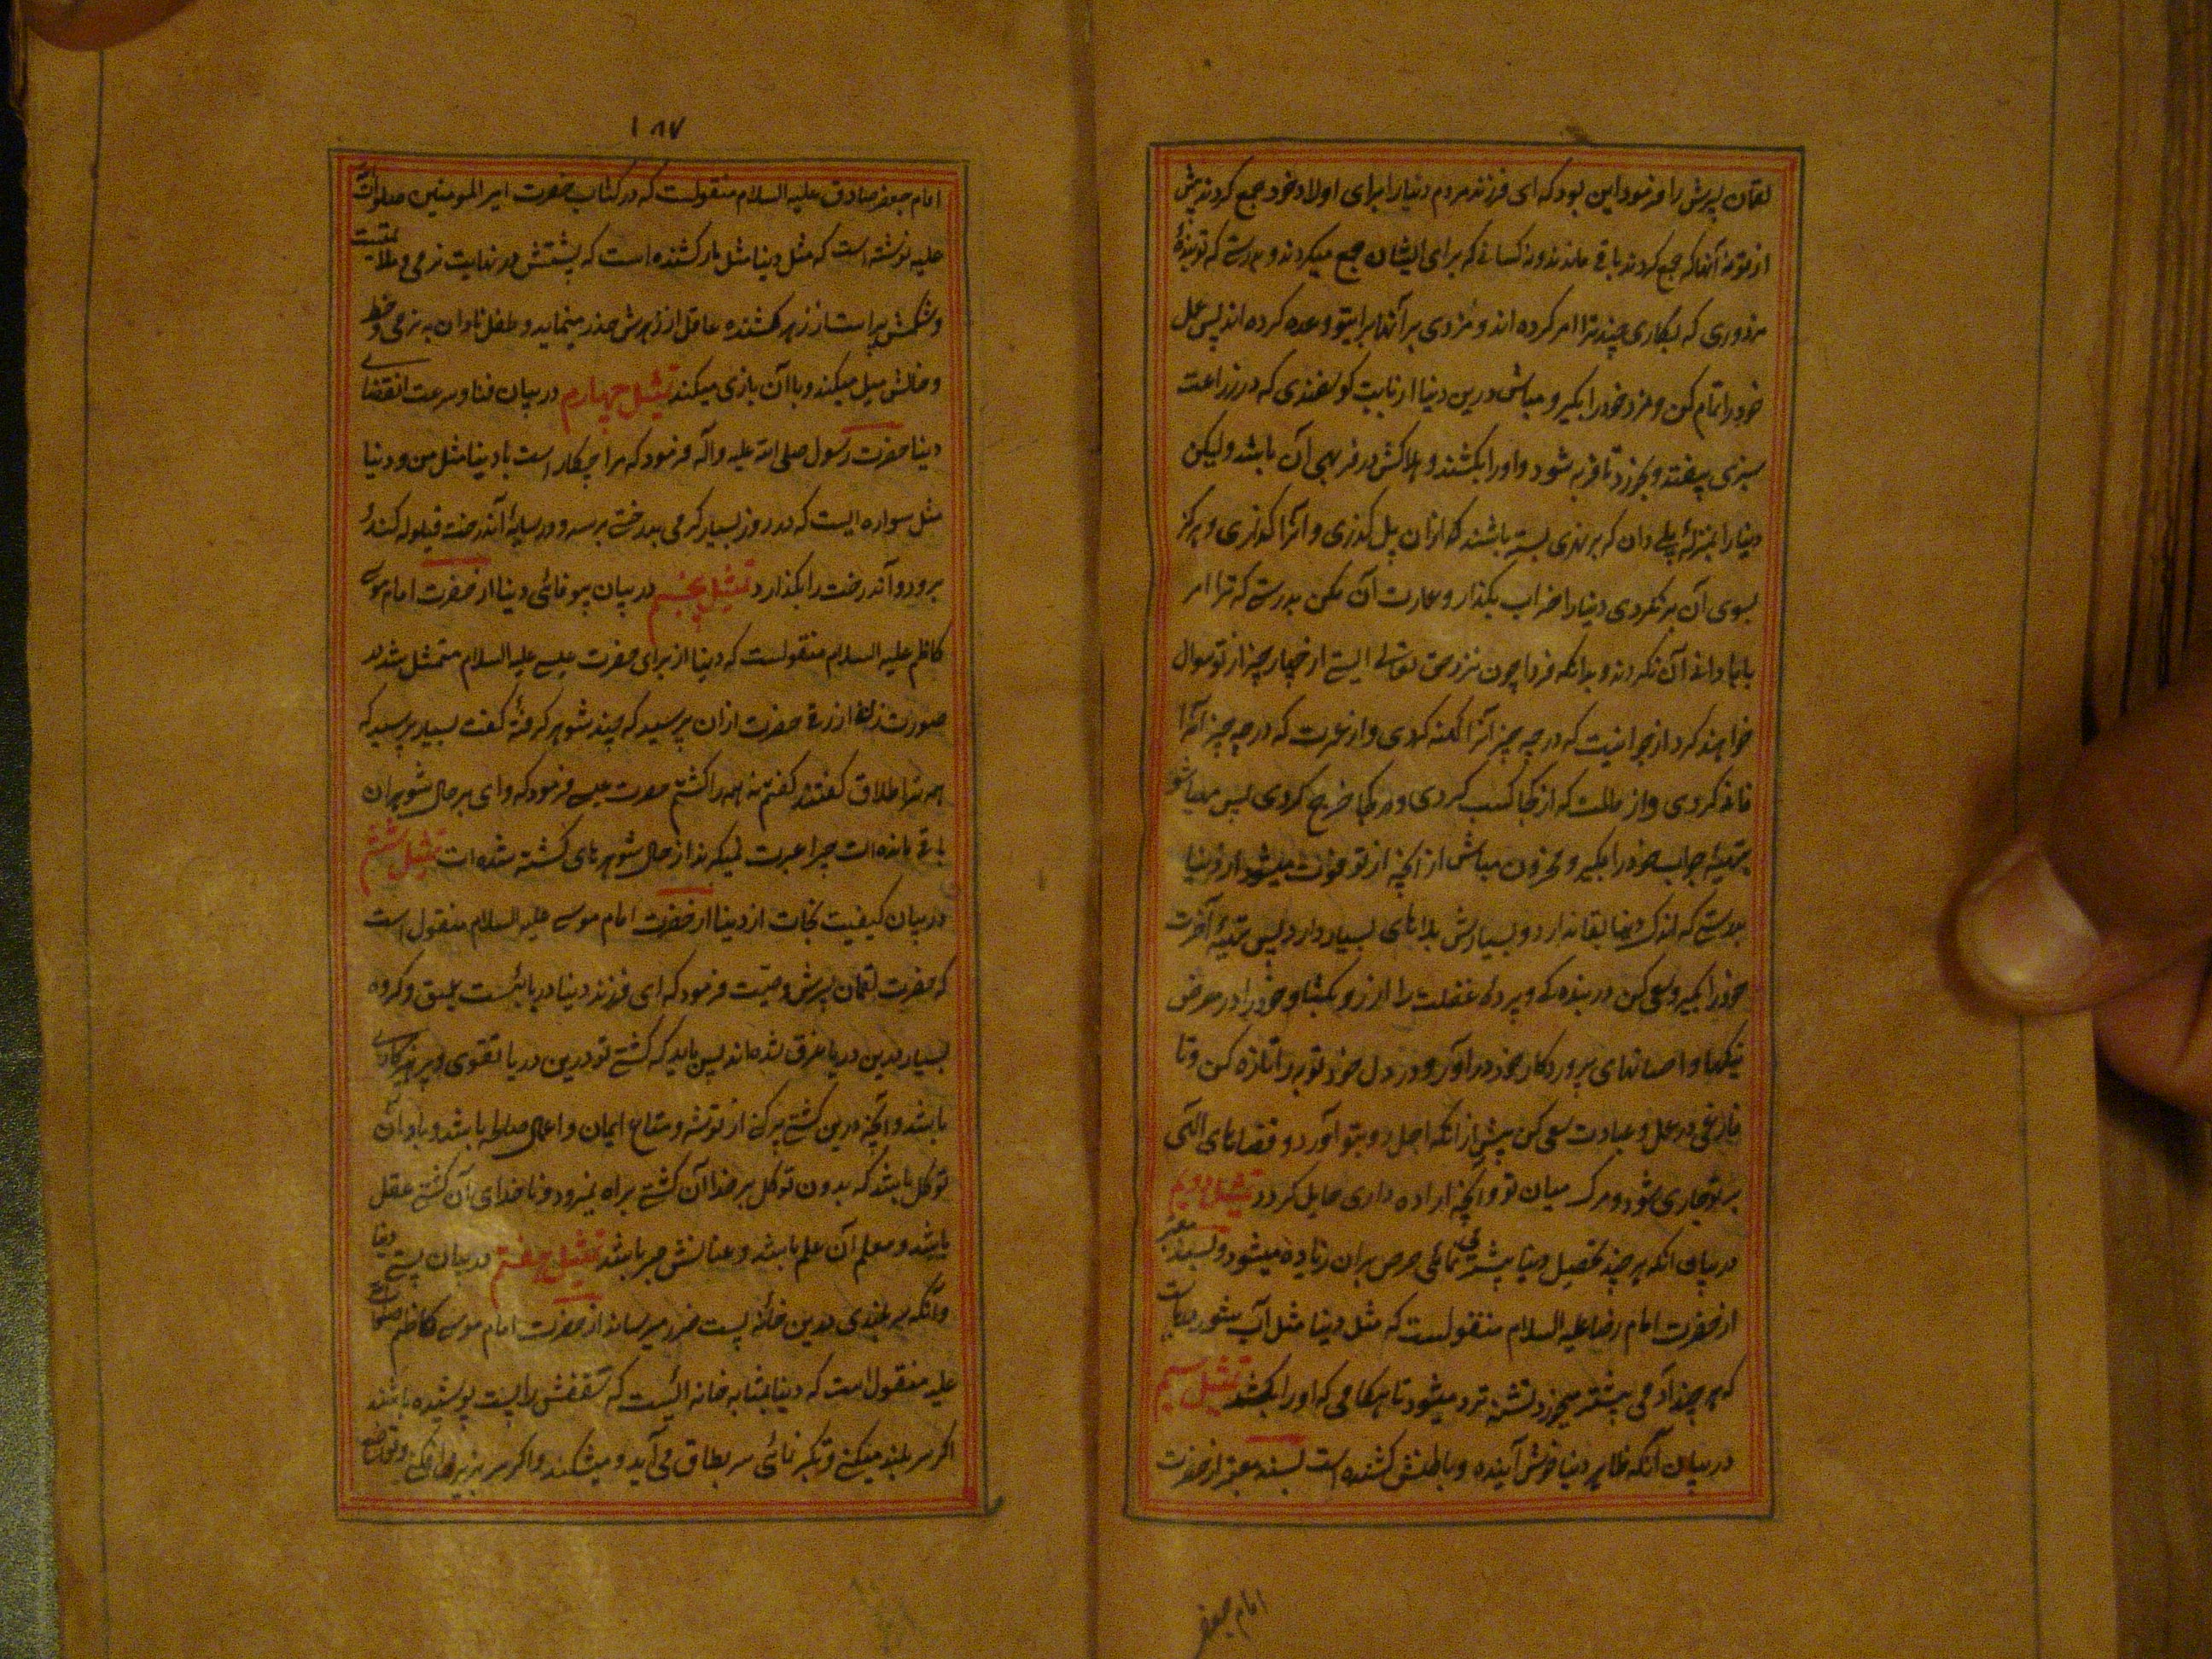 لقمان پسرش را فرمود این بود که ای فرزند مردم دنیا را برای اولاد خود جمع کردند پیش
از تو نه آنها که جمع کردند باقی ماندند و نه کسانی که برای ایشان جمع میکردند و بدرستی که تو بندهٔ
مزدوری که بکاری چند ترا امر کرده اند و مزدی بر آنها برای تو وعده کرده اند پس عمل
خود را تمام کن و مزد خود را بگیر و مباش درین دنیا از بابت گوسفندی که در زراعت
سبزی بیفتد و بچرد تا فربه شود و او را بکشند و هلاکش در فربهی آن باشد ولیکن
دنیا را بمنزلهٔ پلی دان که بر نهری بسته باشند که ازان پل گذری و آنرا گذاری و هرگز
بسوی آن برنگردی دنیا را خراب بگذار و عمارت آن مکن بدرستی که ترا امر
بآبادانی آن نکردند و بدانکه فردا چون نزد حق تعالی ایستی از چهار چیز از تو سوال
خواهند کرد از جوانیت که در چه چیز آنرا کهنه کردی و از عمرت که در چه چیز آنرا
فانی کردی و از مالت که از کجا کسب کردی و در کجا خرج کردی پس مهیا شو
تهیهٔ جواب خود را بگیر و محزون مباش از آنچه از تو فوت میشود از دنیا
بدرستی که اندک دنیا بقا ندارد و بسیارش بلاهای بسیار دارد پس تهیهٔ آخرت
خود را بگیر و سعی کن در بندگی و پردهٔ غفلت را از رو بگشا و خود را در معرض
نیکیها و احسانهای پروردگار خود درآور و در دل خود توبه را تازه کن و تا
فارغی در عمل و عبادت سعی کن پیش از آنکه اجل رو بتو آورد و قضاهای الهی
بر تو جاری شود و مرگ میان تو و آنچه اراده داری حایل گردد تمثیل دویم
در بیان آنکه هر چند تحصیل دنیا بیشتر نمائی حرص بران زیاده میشود و بسند معتبر
از حضرت امام رضا علیه السلام منقولست که مثل دنیا مثل آب شور دریاست
که هر چند آدمی بیشتر میخورد تشنه تر میشود تا هنگامی که او را بکشد تمثیل سیم
در بیان آنکه ظاهر دنیا خوش آینده و باطنش کشنده است بسند معتبر از حضرت
امام جعفر
۱۸۷
امام جعفر صادق علیه السلام منقولست که در کتاب حضرت امیر المومنین صلوات الله
علیه نوشته است که مثل دنیا مثل مار کشنده است که پشتش در نهایت نرمی و ملایمتیست
و شکمش پر است از زهر کشنده عاقل از زهرش حذر مینماید و طفل نادان به نرمی و خط
و خالش میل میکند و با آن بازی میکند تمثیل چهارم در بیان فنا و سرعت انقضای
دنیا حضرت رسول صلی الله علیه و آله فرمود که مرا چکار است با دنیا مثل من و دنیا
مثل سواره ایست که در روز بسیار گرمی بدرختی برسد و در سایهٔ آندرخت قیلوله کند و
برود و آندرخت را بگذارد تمثیل پنجم در بیان بیوفائی دنیا از حضرت امام موسی
کاظم علیه السلام منقولست که دنیا از برای حضرت عیسی علیه السلام متمثل شد در
صورت زنی ازرقی حضرت ازان پرسید که چند شوهر کرفتهٔ گفت بسیار پرسید که
همه ترا طلاق گفتند گفتم نه همه را کشتم حضرت عیسی فرمود که وای بر حال شوهران
باقی مانده ات چرا عبرت نمیگیرند از حال شوهرهای کشته شده ات تمثیل ششم
در بیان کیفیت نجات از دنیا از حضرت امام موسی علیه السلام منقول است
که حضرت لقمان پسرش وصیت فرمود که ای فرزند دنیا دریائیست عمیق و گروه
بسیار درین دریا غرق شده اند پس باید که کشتی تو درین دریا تقوی و پرهیزکاری
باشد و آنچه درین کشتی پر کنی از توشه و متاع ایمان و اعمال صالحه باشد و بادبان
توکل باشد که بدون توکل بر خدا آن کشتی براه نمیرود و ناخدای آن کشتی عقل
باشد و معلم آن علم باشد و عنانش صبر باشد تمثیل هفتم در بیان پستی دنیا
و آنکه سربلندی درین خانه پست ضرر میرساند از حضرت امام موسی کاظم صلوات الله
علیه منقول است که دنیا بمثابه خانه ایست که سقفش را پست پوشیده باشند
اگر سر بلند میکنی و تکبر نمائی سر بطاق می آید و میشکند و اگر سر بزیر می افکنی و تواضع